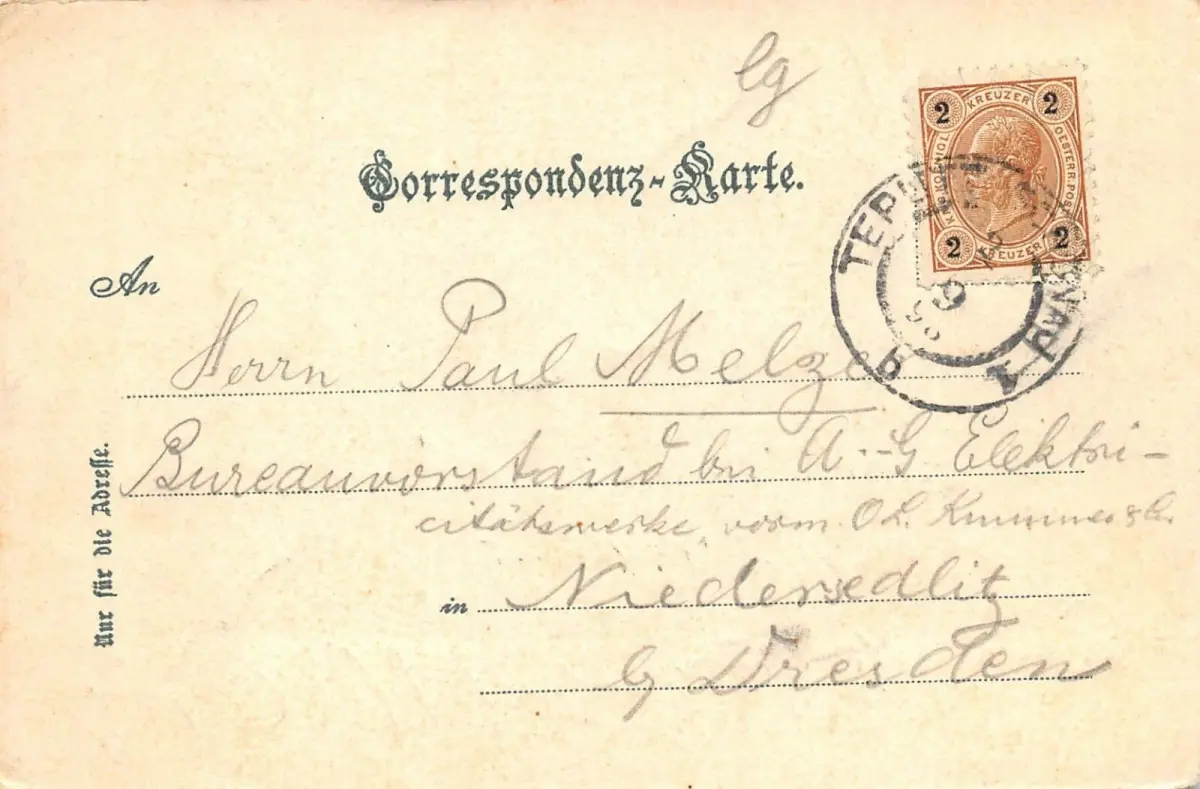 lg
Correspondenz-Karte.
2 KREUZER 2
KAIS. KOENIGL. OESTERR. POST
2 KREUZER 2
TEPLITZ SCHÖNAU 1
An
Herrn Paul Melzer
Bureauvorstand bei A.-G Elektri-
citätswerke, vorm. O.L. Kummer & Co.
in Niedersedlitz
b/ Dresden
Nur für die Adresse.